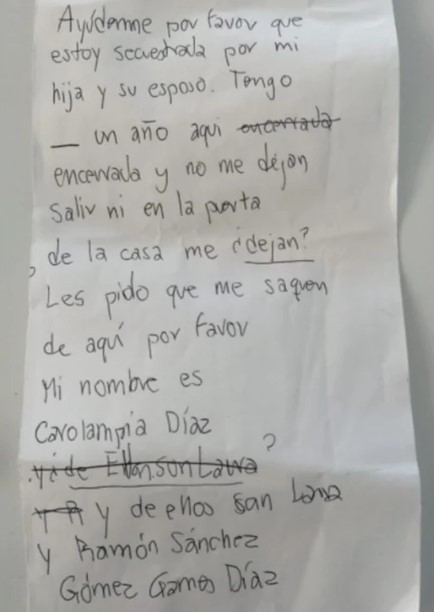 Ayúdenme por favor que
estoy secuestrada por mi
hija y su esposo. Tengo
_ un año aqui encerrada
encerrada y no me dejan
Salir ni en la puerta
, de la casa me ¿dejan?
Les pido que me saquen
de aquí por favor
Mi nombre es
Carolampia Díaz
de Ellon.son Lawa ?
y de ellos san Lana
y Ramón Sánchez
Gómez Games Díaz